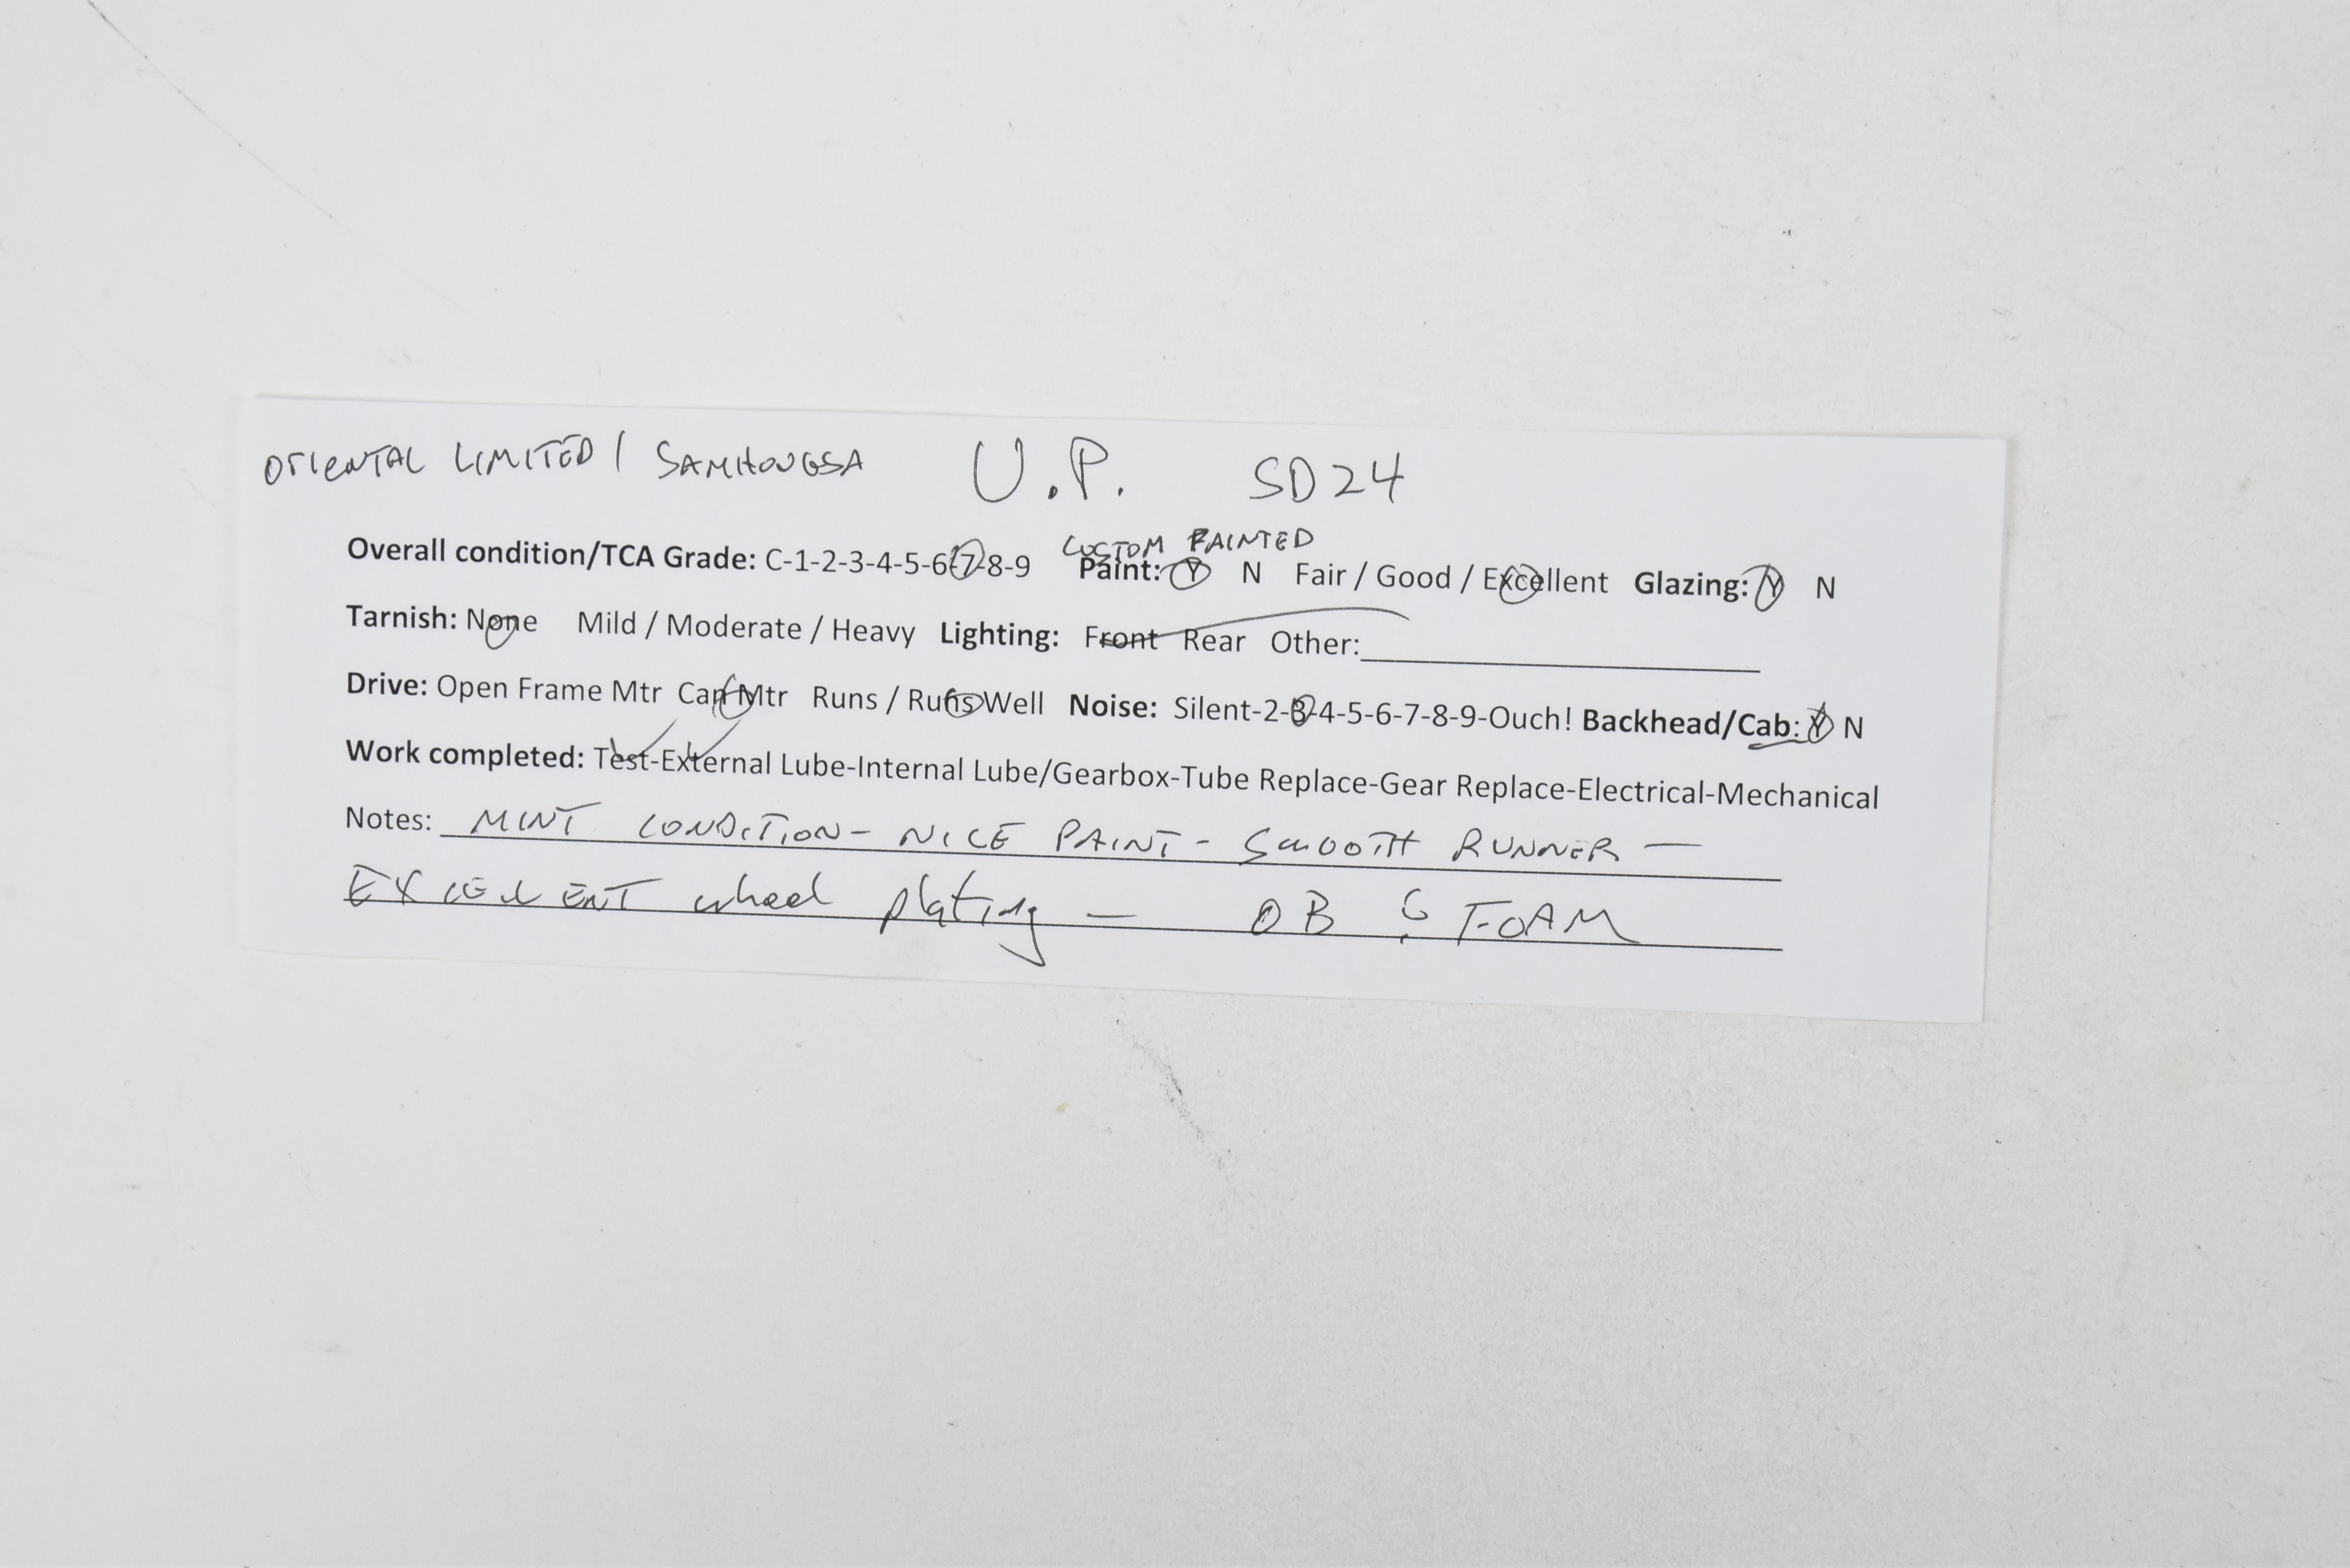 ORIENTAL LIMITED / SAMHONGSA U.P. SD24
CUSTOM PAINTED
Overall condition/TCA Grade: C-1-2-3-4-5-6-7-8-9 Paint: Y N Fair / Good / Excellent Glazing: Y N
Tarnish: None Mild / Moderate / Heavy Lighting: Front Rear Other:
Drive: Open Frame Mtr Can Mtr Runs / Runs Well Noise: Silent-2-3-4-5-6-7-8-9-Ouch! Backhead/Cab: Y N
Work completed: Test-External Lube-Internal Lube/Gearbox-Tube Replace-Gear Replace-Electrical-Mechanical
Notes: MINT CONDITION - NICE PAINT - SMOOTH RUNNER —
EXCELLENT wheel plating — OB & FOAM